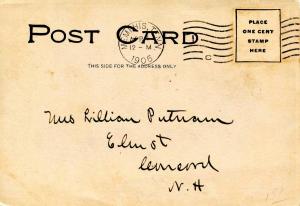 POST CARD
MEMPHIS, TENN.
12-M
1905
C
PLACE
ONE CENT
STAMP
HERE
THIS SIDE FOR THE ADDRESS ONLY
Miss Lillian Putnam
Elm st
Concord
N.H